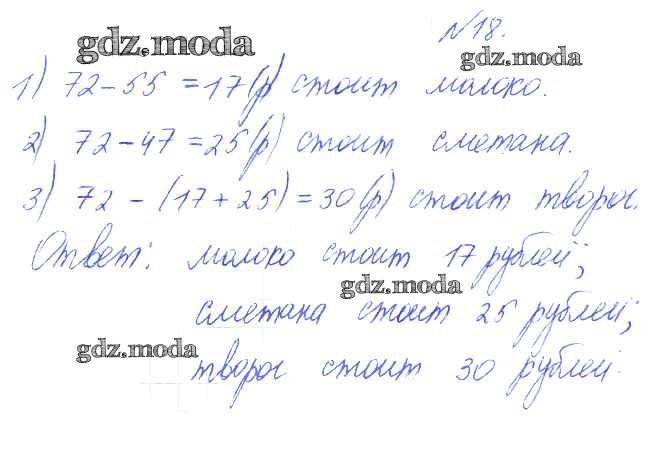 №18.
gdz.moda
gdz.moda
1) 72-55=17(р) стоит молоко.
2) 72-47=25(р) стоит сметана.
3) 72-(17+25)=30(р) стоит творог.
Ответ: молоко стоит 17 рублей;
gdz.moda
сметана стоит 25 рублей;
gdz.moda
творог стоит 30 рублей.